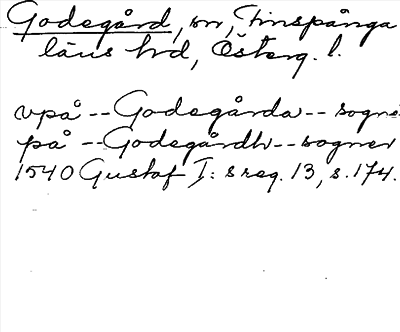 Godegård, sn, Finspånga
läns hrd, Österg. l.
vpå -- Godegårda -- sogne
på -- Godegårdh -- sogner
1540 Gustaf I: s reg. 13, s. 174.